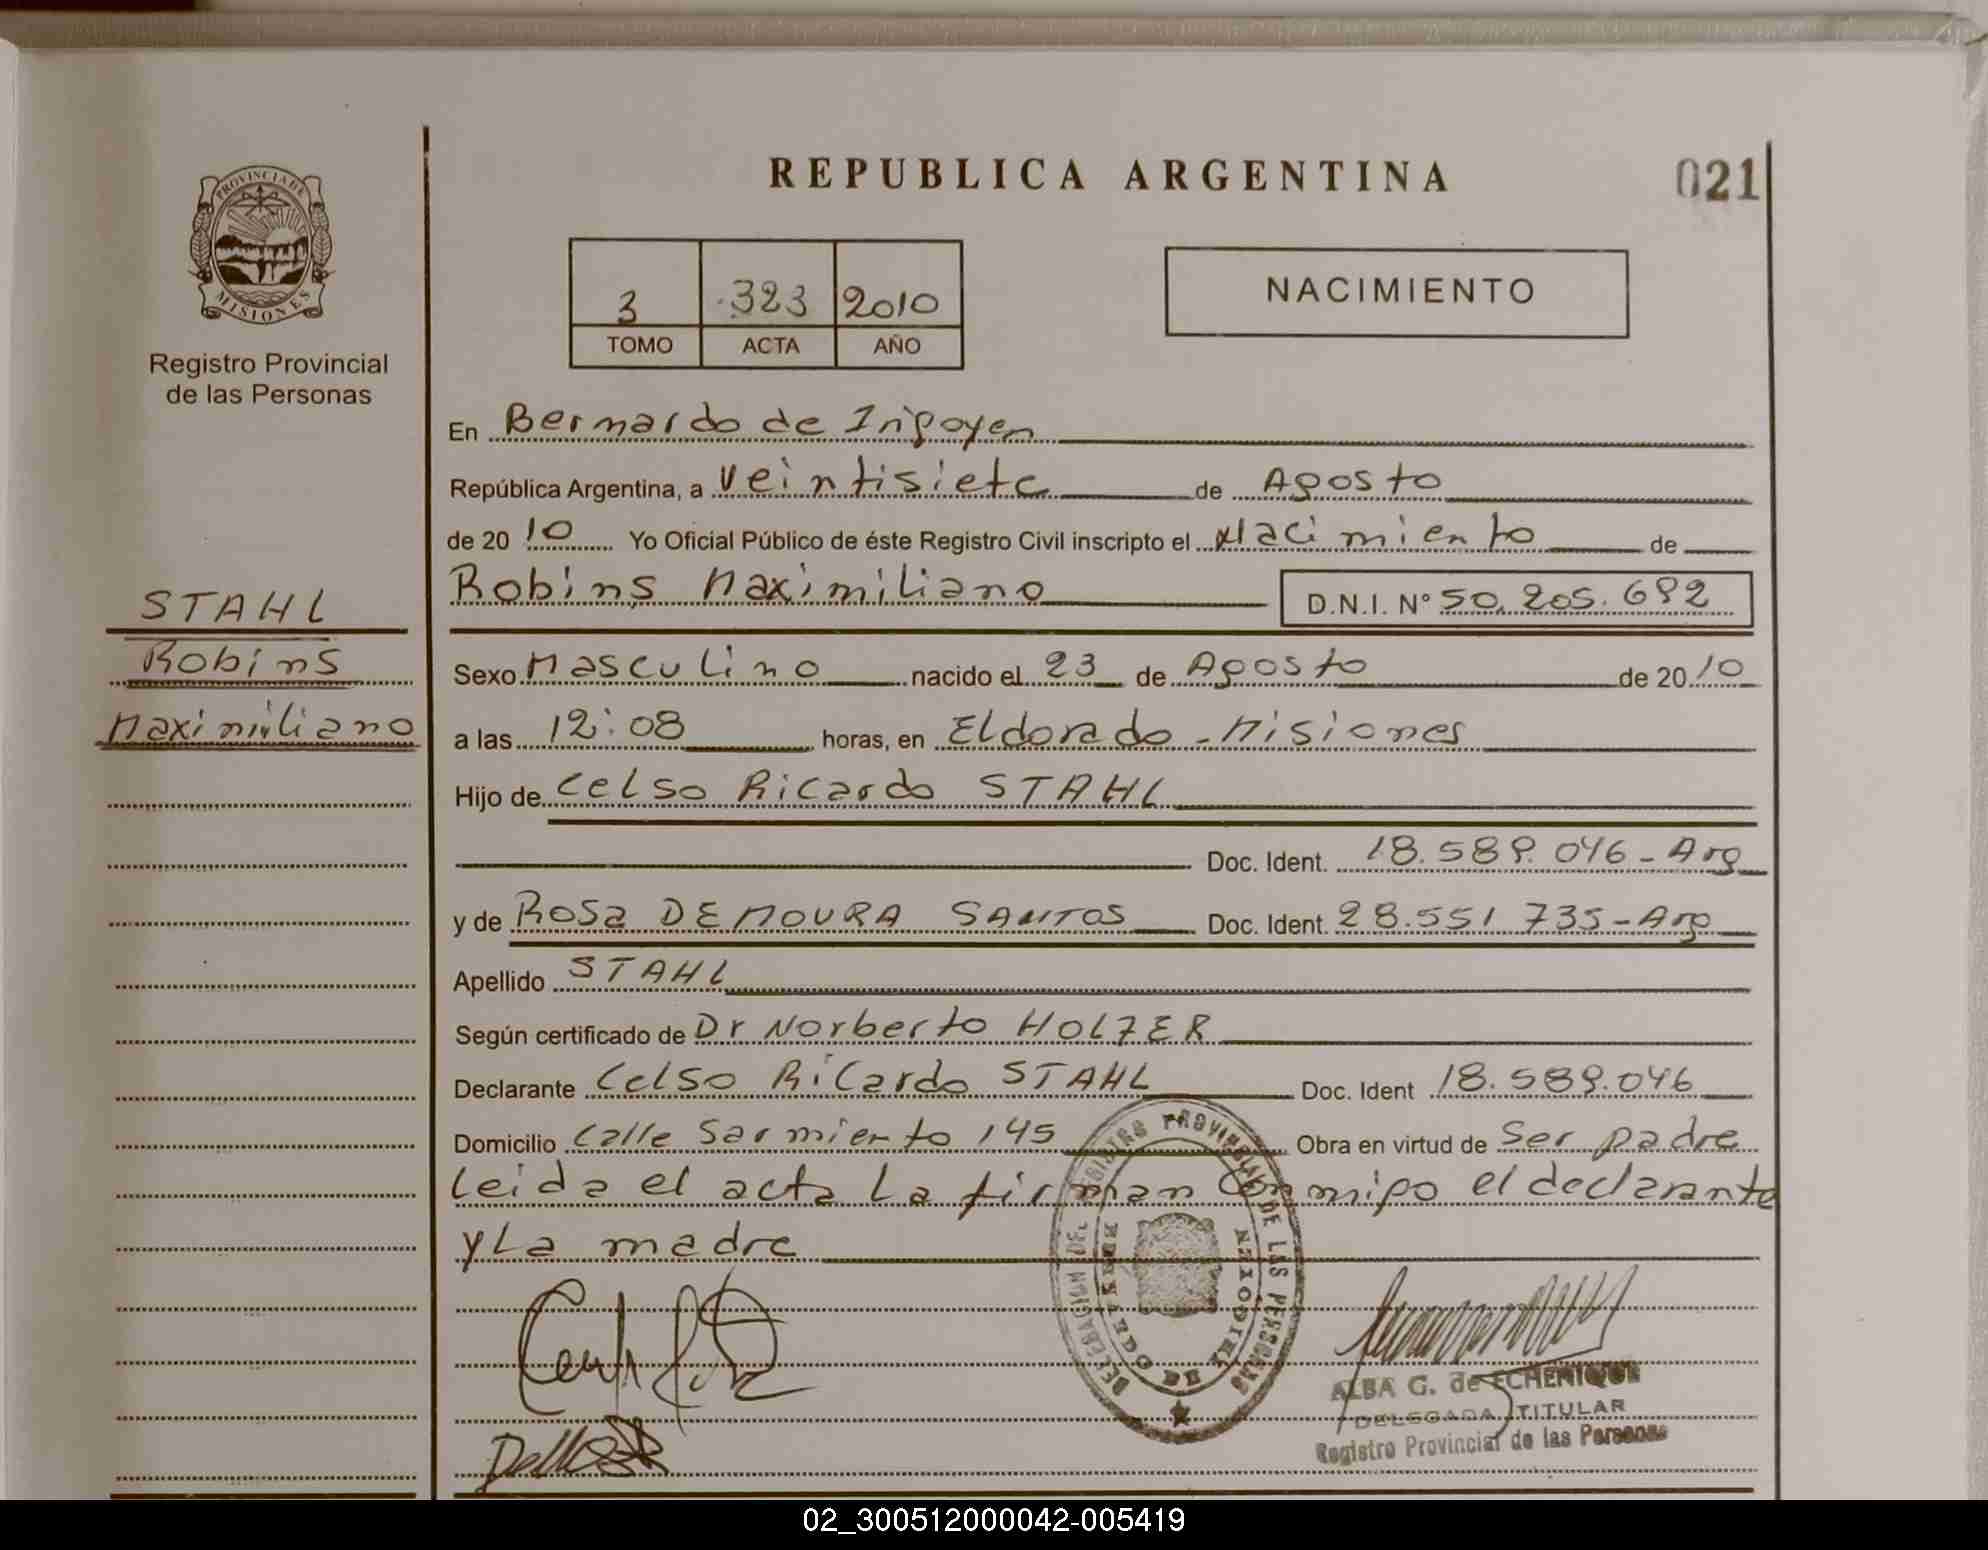 REPUBLICA ARGENTINA
021
PROVINCIA DE
MISIONES
Registro Provincial
de las Personas
3 323 2010
TOMO ACTA AÑO
NACIMIENTO
En Bernardo de Irigoyen
República Argentina, a veintisiete de Agosto
de 2010 Yo Oficial Público de éste Registro Civil inscripto el Nacimiento de
Robins Maximiliano D.N.I. N° 50.205.692
STAHL
Robins
Maximiliano
Sexo Masculino nacido el 23 de Agosto de 2010
a las 12:08 horas, en Eldorado - Misiones
Hijo de Celso Ricardo STAHL
Doc. Ident. 18.589.046 - Arg
y de Rosa DE MOURA SANTOS Doc. Ident. 28.551.735 - Arg
Apellido STAHL
Según certificado de Dr Norberto HOLZER
Declarante Celso Ricardo STAHL Doc. Ident 18.589.046
Domicilio Calle Sarmiento 145 Obra en virtud de Ser padre
leida el acta la firman conmigo el declarante
y la madre
DELEGACION DEL REGISTRO PROVINCIAL DE LAS PERSONAS
DE IRIGOYEN
ALBA G. de ECHENIQUE
DELEGADA TITULAR
Registro Provincial de las Personas
02_300512000042-005419